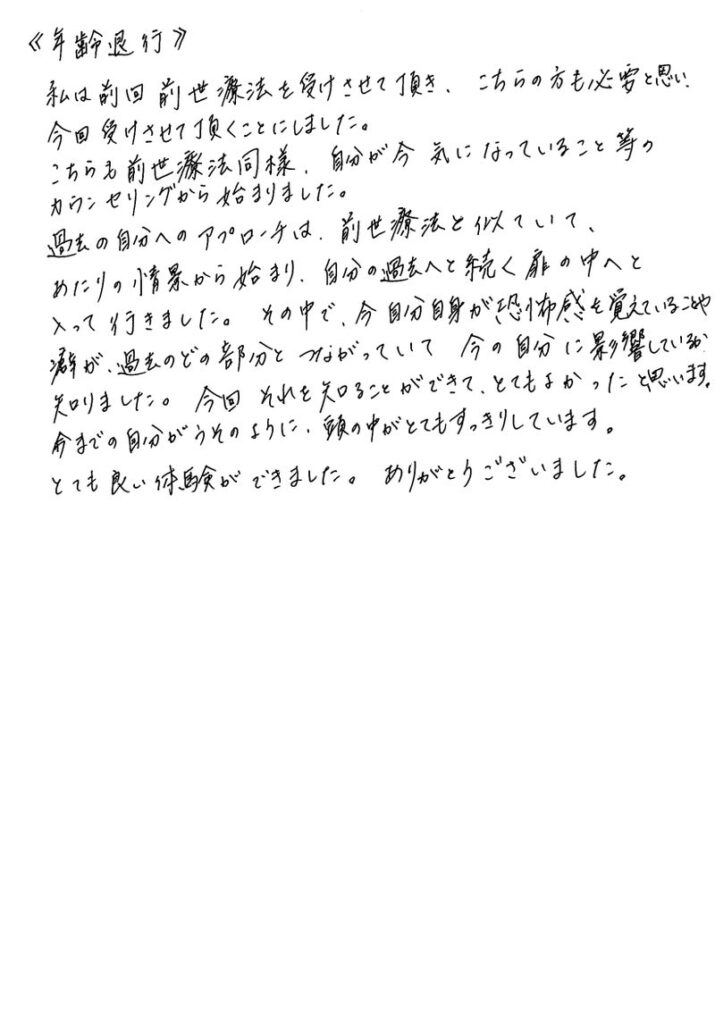 《年齢退行》
私は前回前世療法を受けさせて頂き、こちらの方も必要と思い
今回受けさせて頂くことにしました。
こちらも前世療法同様、自分が今気になっていること等の
カウンセリングから始まりました。
過去の自分へのアプローチは、前世療法と似ていて、
あたりの情景から始まり、自分の過去へと続く扉の中へと
入って行きました。その中で、今自分自身が恐怖感を覚えていることや
癖が、過去のどの部分とつながっていて今の自分に影響しているか
知りました。今回それを知ることができて、とてもよかったと思います。
今までの自分がうそのように、頭の中がとてもすっきりしています。
とても良い体験ができました。ありがとうございました。